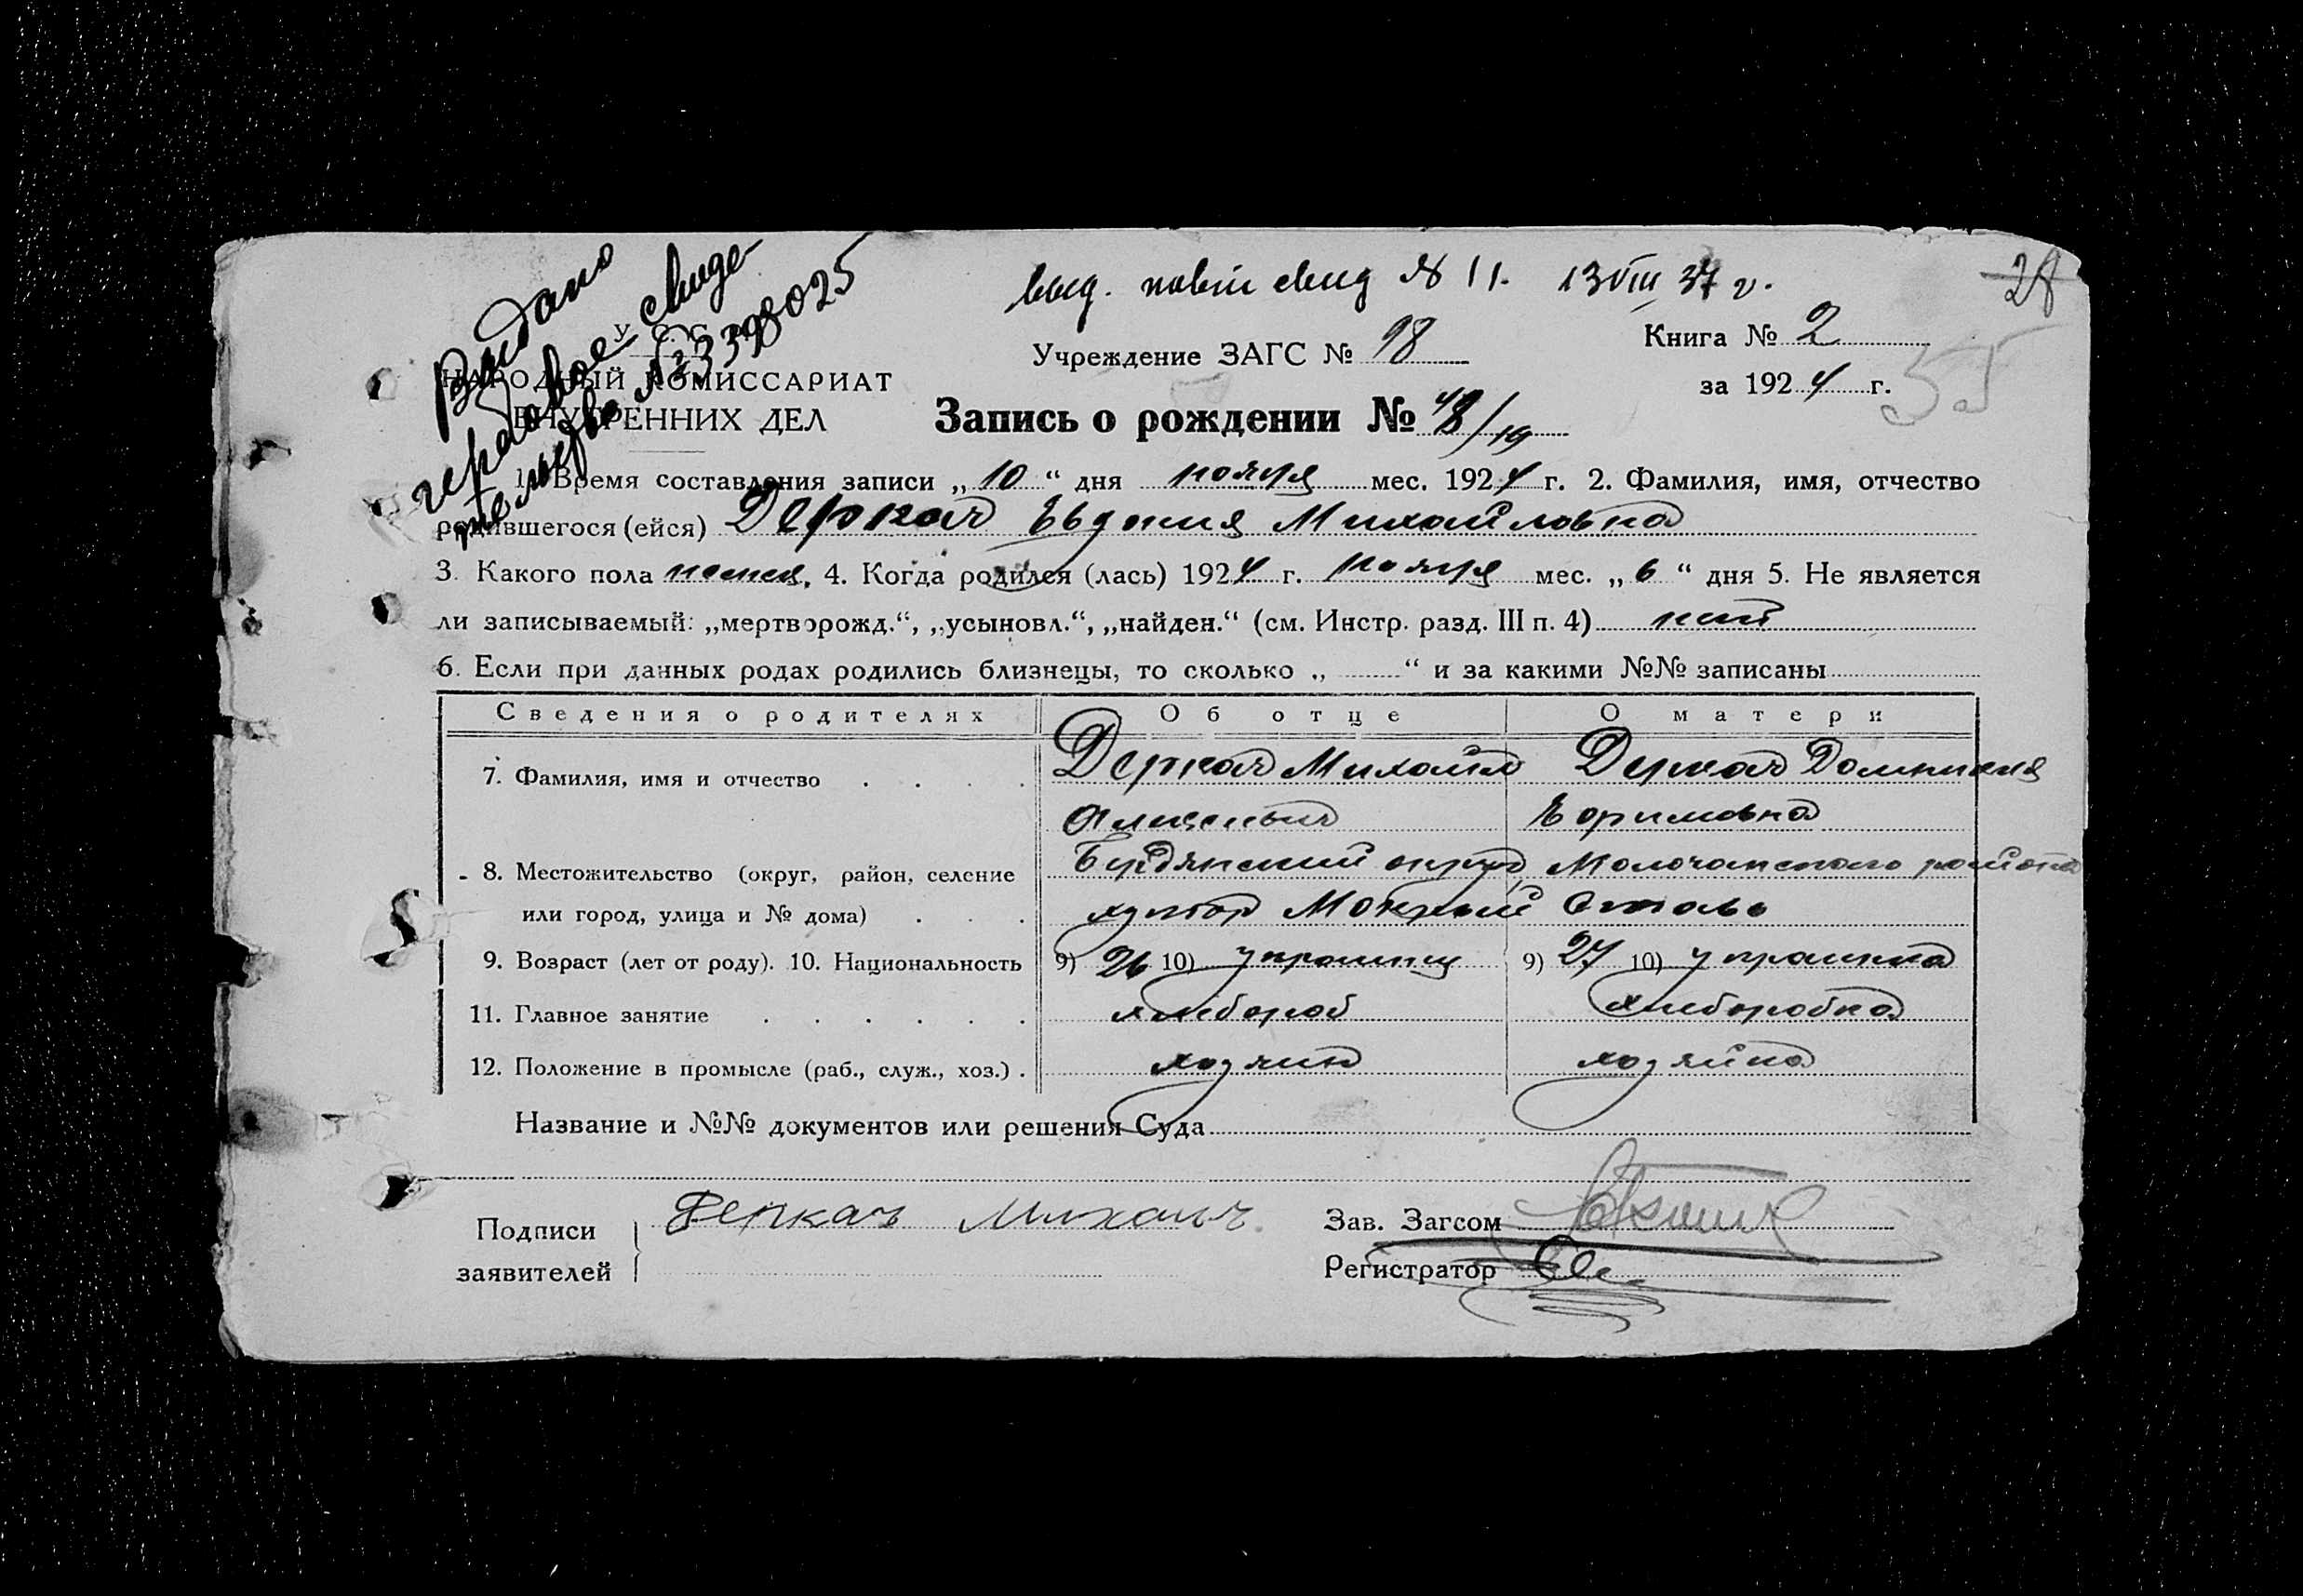 Выдано
гербовое свиде-
тельство № 3398025
выд. новый свид № 11. 13 VIII 37 г.
28
У. С. С. Р.
Учреждение ЗАГС № 18
Книга № 2
НАРОДНЫЙ КОМИССАРИАТ
за 1924 г.
55
ВНУТРЕННИХ ДЕЛ
Запись о рождении № 48/19
1. Время составления записи „10“ дня ноября мес. 1924 г. 2. Фамилия, имя, отчество
родившегося (ейся) Деркач Евдокия Михайловна
3. Какого пола женск. 4. Когда родился (лась) 1924 г. ноября мес. „6“ дня 5. Не является
ли записываемый: „мертворожд.“, „усыновл.“, „найден.“ (см. Инстр. разд. III п. 4)
6. Если при данных родах родились близнецы, то сколько „ “ и за какими №№ записаны
Сведения о родителях Об отце О матери
7. Фамилия, имя и отчество Деркач Михайло Деркач Домникия
Алексеевич Ефримовна
8. Местожительство (округ, район, селение Бердянский округ Молочанского района
или город, улица и № дома) хутор Мокрый Ставок
9. Возраст (лет от роду). 10. Национальность 9) 26 10) украинец 9) 27 10) украинка
11. Главное занятие хлебороб хлеборобка
12. Положение в промысле (раб., служ., хоз.) хозяин хозяйка
Название и №№ документов или решения Суда
Подписи
заявителей
Деркач Михаил
Зав. Загсом
Регистратор